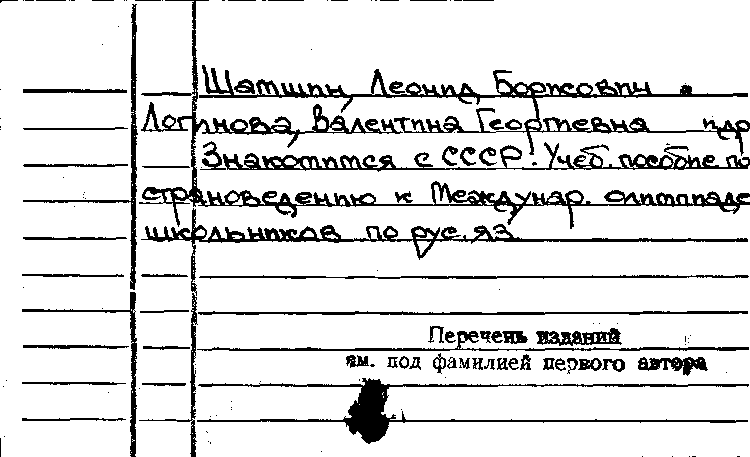 Шатшин, Леонид Борисович.
Логинова, Валентина Георгиевна и др
Знакомимся с СССР: Учеб. пособие по
страноведению к Междунар. олимпиаде
школьников по рус. яз.
Перечень изданий
см. под фамилией первого автора